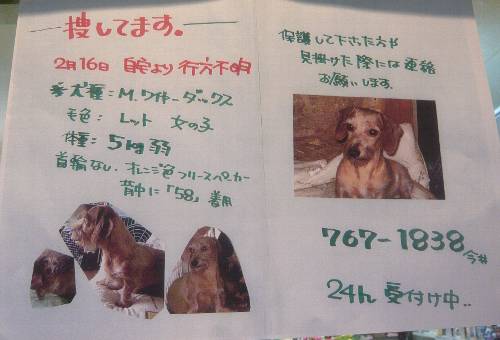 捜してます。
2月16日 自宅より行方不明
犬種：M.ワイヤーダックス
毛色：レット 女の子
体重：5kg弱
首輪なし、オレンジ色フリースパーカー
背中に「58」着用
保護して下さった方や
見掛けた際には連絡
お願いします。
767-1838
今井
24h 受付け中..